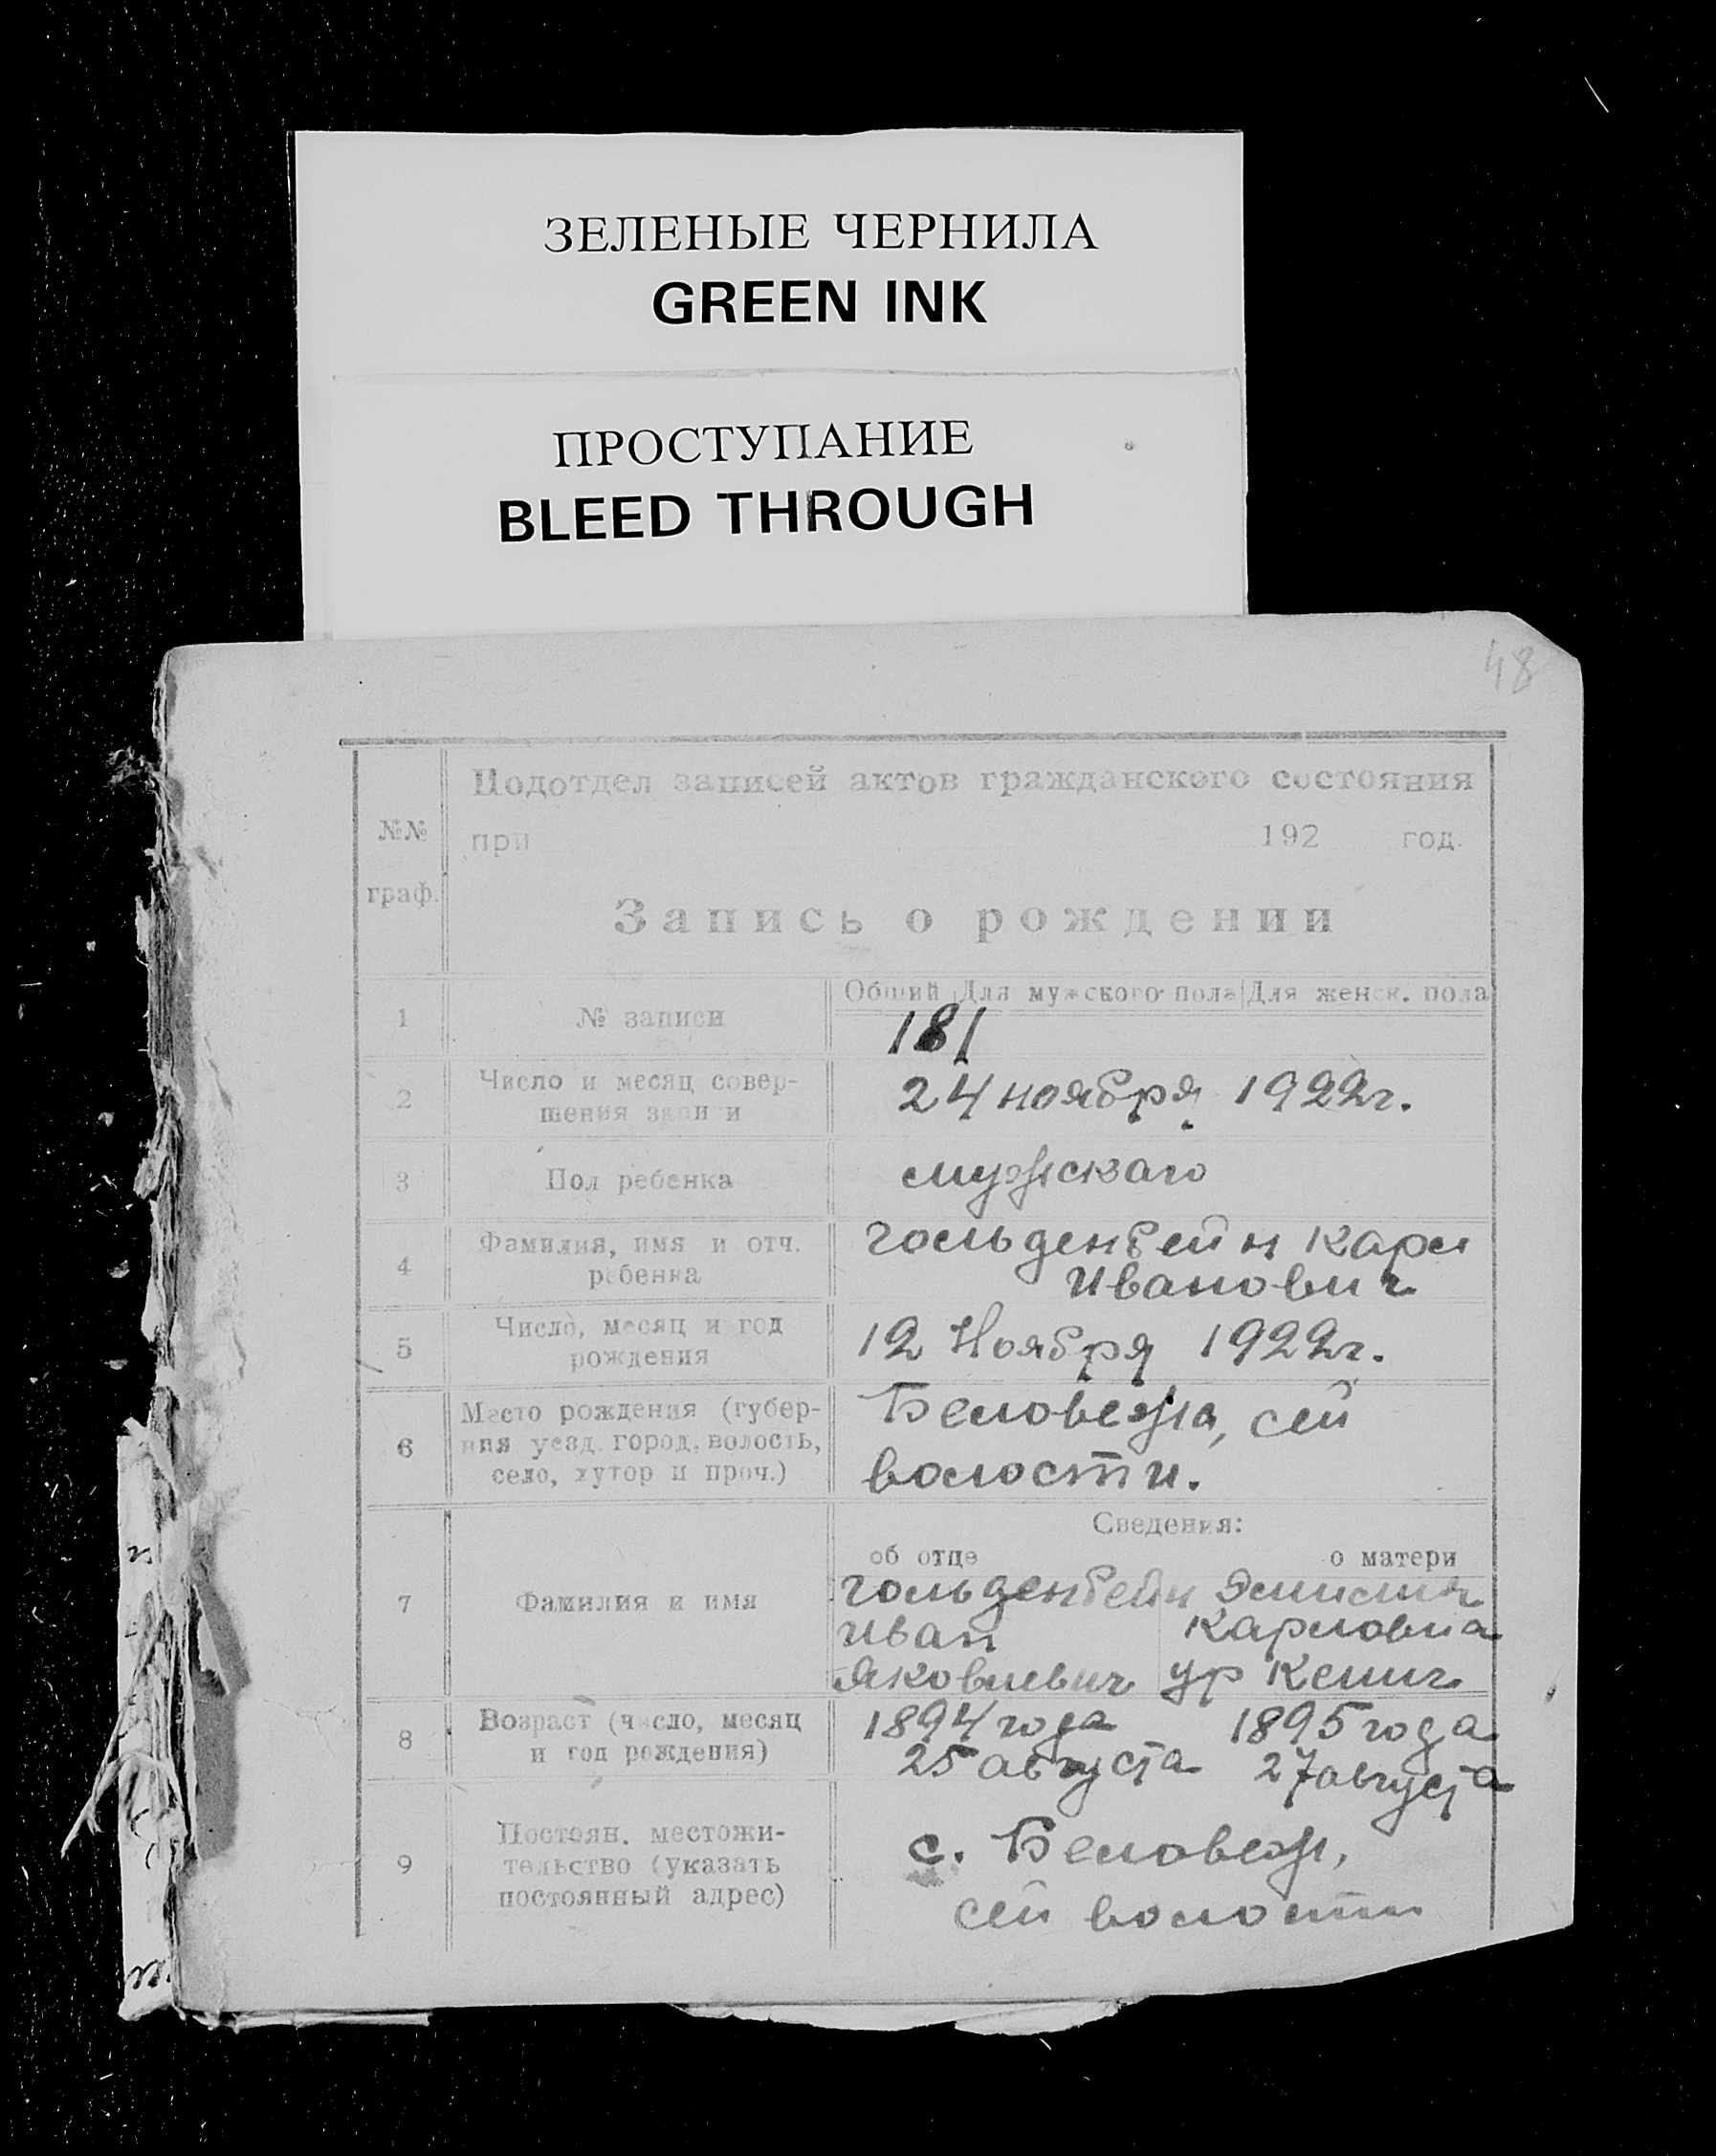 ЗЕЛЕНЫЕ ЧЕРНИЛА
GREEN INK
ПРОСТУПАНИЕ
BLEED THROUGH
48
№№ граф.
Подотдел записей актов гражданского состояния
при 192 год.
Запись о рождении
Общий Для мужского пола Для женск. пола
1 № записи 181
2 Число и месяц совер-
шения записи
24 ноября 1922г.
3 Пол ребенка мужскаго
4 Фамилия, имя и отч.
ребенка
Гольденбейн Карл
Иванович
5 Число, месяц и год
рождения
12 Ноября 1922г.
6 Место рождения (губер-
ния уезд. город, волость,
село, хутор и проч.)
Беловежа, сей
волости.
Сведения:
об отце о матери
7 Фамилия и имя
Гольденбейн
Иван
Яковлевич
Карловна
ур Кениг
8 Возраст (число, месяц
и год рождения)
1894 года
25 августа
1895 года
27 августа
9 Постоян. местожи-
тельство (указать
постоянный адрес)
с. Беловеж,
сей волости